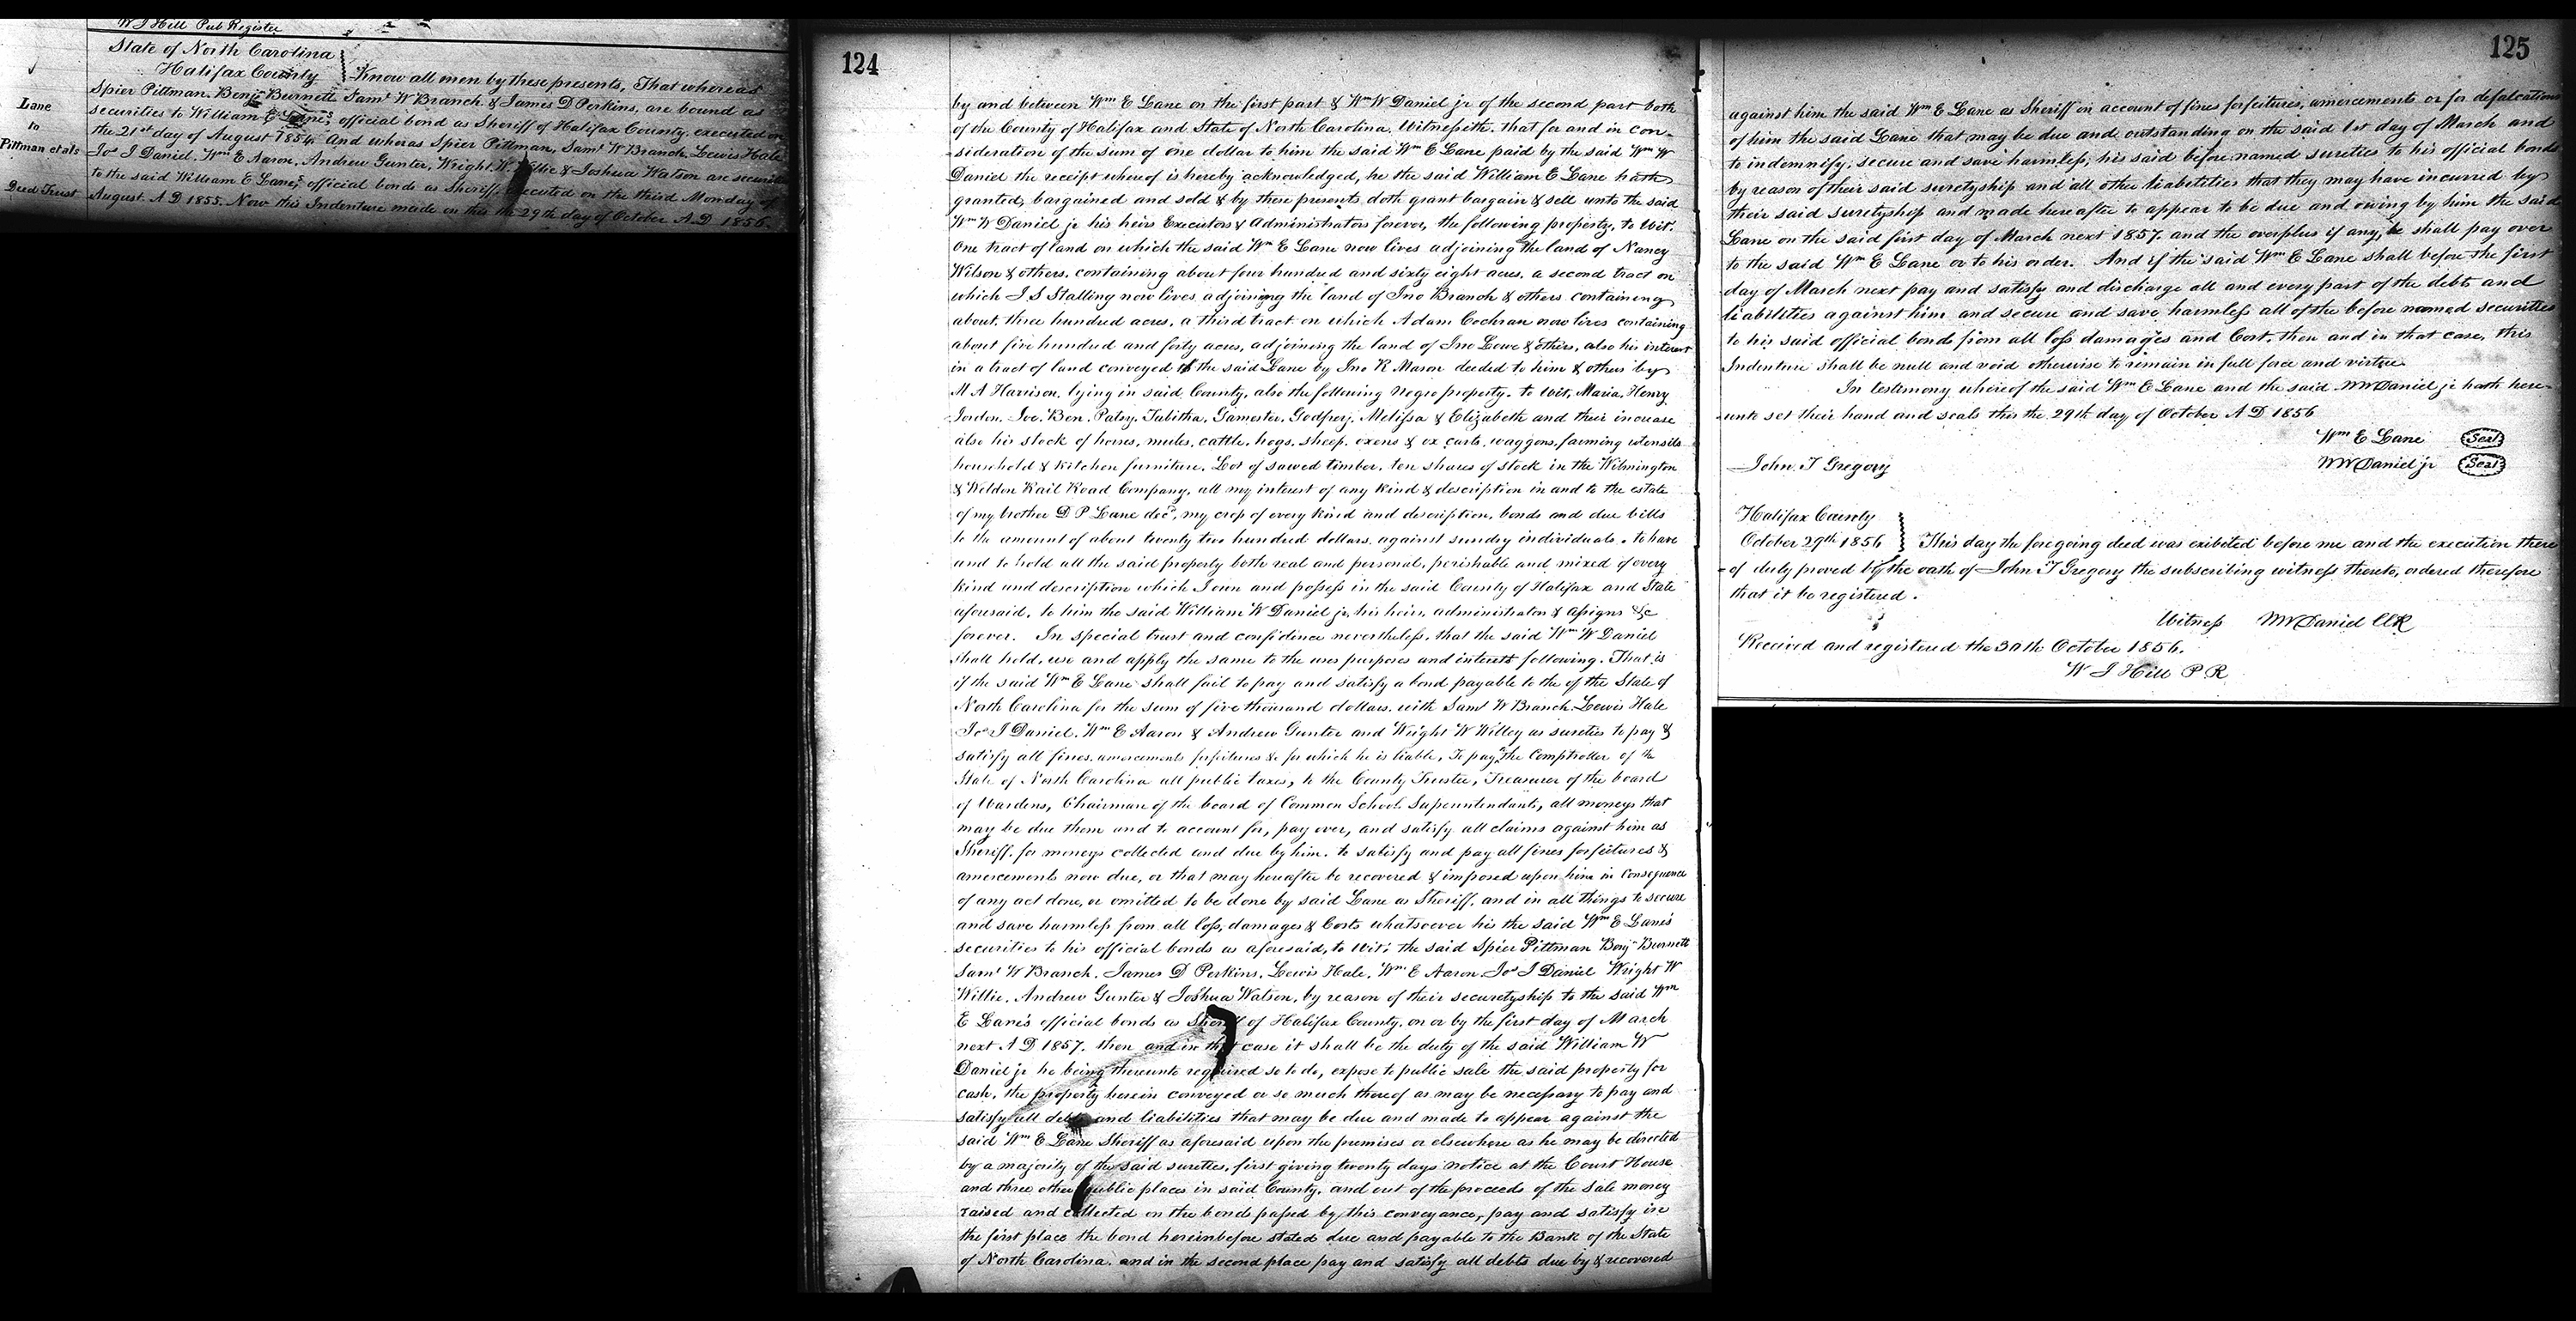 W J Hill Pub Register
State of North Carolina
Halifax County Know all men by these presents, That whereas
Spier Pittman, Benjn Burnett Saml W Branch & James D Perkins, are bound as
securities to William E Lane's official bond as Sheriff of Halifax County, executed on
the 21st day of August 1854, And wheras Spier Pittman, Saml W Branch, Lewis Hale
Jos J Daniel, Wm E Aaron, Andrew Gunter, Wright W. Willie & Joshua Watson are securities
to the said William E Lane's official bonds as Sheriff executed on the third Monday of
August A D 1855. Now this Indenture made on this the 29th day of October A.D 1856.
Lane
to
Pittman et als
Deed Trust
124
by and between Wm E Lane on the first part & Wm W Daniel jr of the second part both
of the County of Halifax and State of North Carolina, Witnesseth, that for and in con-
-sideration of the sum of one dollar to him the said Wm E Lane paid by the said Wm W
Daniel the receipt whereof is hereby acknowledged, he the said William E Lane hath
granted, bargained and sold & by these presents doth grant bargain & sell unto the said
Wm W Daniel jr his heirs Executors & Administrators forever, the following property, to wit:
One tract of land on which the said Wm E Lane now lives adjoining the land of Nancy
Wilson & others, containing about four hundred and sixty eight acres, a second tract on
which J S Stalling now lives adjoining the land of Jno Branch & others containing
about three hundred acres, a third tract on which Adam Cochran now lives containing
about five hundred and forty acres, adjoining the land of Jno Lowe & others, also his interest
in a tract of land conveyed to the said Lane by Jno R Mason deeded to him & others by
M A Harrison, lying in said County, also the following Negro property, to wit, Maria, Henry
Jorden, Joe, Ben, Patsy, Tabitha, Gamester, Godfrey, Melissa & Elizabeth and their increase
also his stock of horses, mules, cattle, hogs, sheep, oxens & ox carts, waggons, farming utensils
household & kitchen furniture, Lot of sawed timber, ten shares of stock in the Wilmington
& Weldon Rail Road Company, all my interest of any kind & description in and to the estate
of my brother D P Lane decd, my crop of every kind and description, bonds and due bills
to the amount of about twenty two hundred dollars, against sundry individuals, to have
and to hold all the said property both real and personal, perishable and mixed of every
kind and description which I own and possess in the said County of Halifax and State
aforesaid, to him the said William W Daniel jr, his heirs, administrators & assigns &c
forever. In special trust and confidence nevertheless, that the said Wm W Daniel
shall hold, use and apply the same to the uses purposes and intents following. That is
if the said Wm E Lane shall fail to pay and satisfy a bond payable to the of the State of
North Carolina for the sum of five thousand dollars, with Saml W Branch, Lewis Hale
Jos J Daniel, Wm E Aaron & Andrew Gunter and Wright W Willey as sureties to pay &
satisfy all fines, amercements forfeitures &c for which he is liable, To pay to the Comptroller of the
State of North Carolina all public taxes, to the County Trustee, Treasurer of the board
of Wardens, Chairman of the board of Common School Superintendants, all moneys that
may be due them and to account for, pay over, and satisfy all claims against him as
Sheriff, for moneys collected and due by him, to satisfy and pay all fines forfeitures &
amercements now due, or that may hereafter be recovered & imposed upon him in consequence
of any act done, or omitted to be done by said Lane as Sheriff, and in all things to secure
and save harmless from all loss, damages & Costs whatsoever his the said Wm E Lane's
securities to his official bonds as aforesaid, to wit; the said Spier Pittman Benjn Burnett
Saml W Branch, James D Perkins, Lewis Hale, Wm E Aaron Jos J Daniel Wright W
Willie, Andrew Gunter & Joshua Watson, by reason of their securetyship to the said Wm
E Lane's official bonds as Sheriff of Halifax County, on or by the first day of March
next A D 1857, then and in that case it shall be the duty of the said William W
Daniel jr he being thereunto required so to do, expose to public sale the said property for
cash, the property herein conveyed or so much thereof as may be necessary to pay and
satisfy all debts and liabilities that may be due and made to appear against the
said Wm E Lane Sheriff as aforesaid upon the premises or elsewhere as he may be directed
by a majority of the said sureties, first giving twenty days notice at the Court House
and three other public places in said County, and out of the proceeds of the sale money
raised and collected on the bonds passed by this conveyance, pay and satisfy in
the first place the bond hereinbefore stated due and payable to the Bank of the State
of North Carolina, and in the second place pay and satisfy all debts due by & recovered
125
against him the said Wm E Lane as Sheriff on account of fines forfeitures, amercements or for defalcations
of him the said Lane that may be due and outstanding on the said 1st day of March and
to indemnify, secure and save harmless, his said before named sureties to his official bonds
by reason of their said suretyship and all other liabilities that they may have incurred by
their said suretyship and made hereafter to appear to be due and owing by him the said
Lane on the said first day of March next 1857, and the overplus if any, he shall pay over
to the said Wm E Lane or to his order. And if the said Wm E Lane shall before the first
day of March next pay and satisfy and discharge all and every part of the debts and
liabilities against him and secure and save harmless all of the before named securities
to his said official bonds from all loss damages and Cost, then and in that case, this
Indenture shall be null and void otherwise to remain in full force and virtue
In testimony whereof the said Wm E Lane and the said WW Daniel jr hath here-
-unto set their hand and seals this the 29th day of October A D 1856
Wm E Lane Seal
John T Gregory WW Daniel jr Seal
Halifax County
October 29th 1856 This day the foregoing deed was exibited before me and the execution there
-of duly proved by the oath of John T Gregory the subscribing witness thereto, ordered therefore
that it be registered.
Witness WW Daniel Clk
Received and registered the 30th October 1856.
W J Hill P R